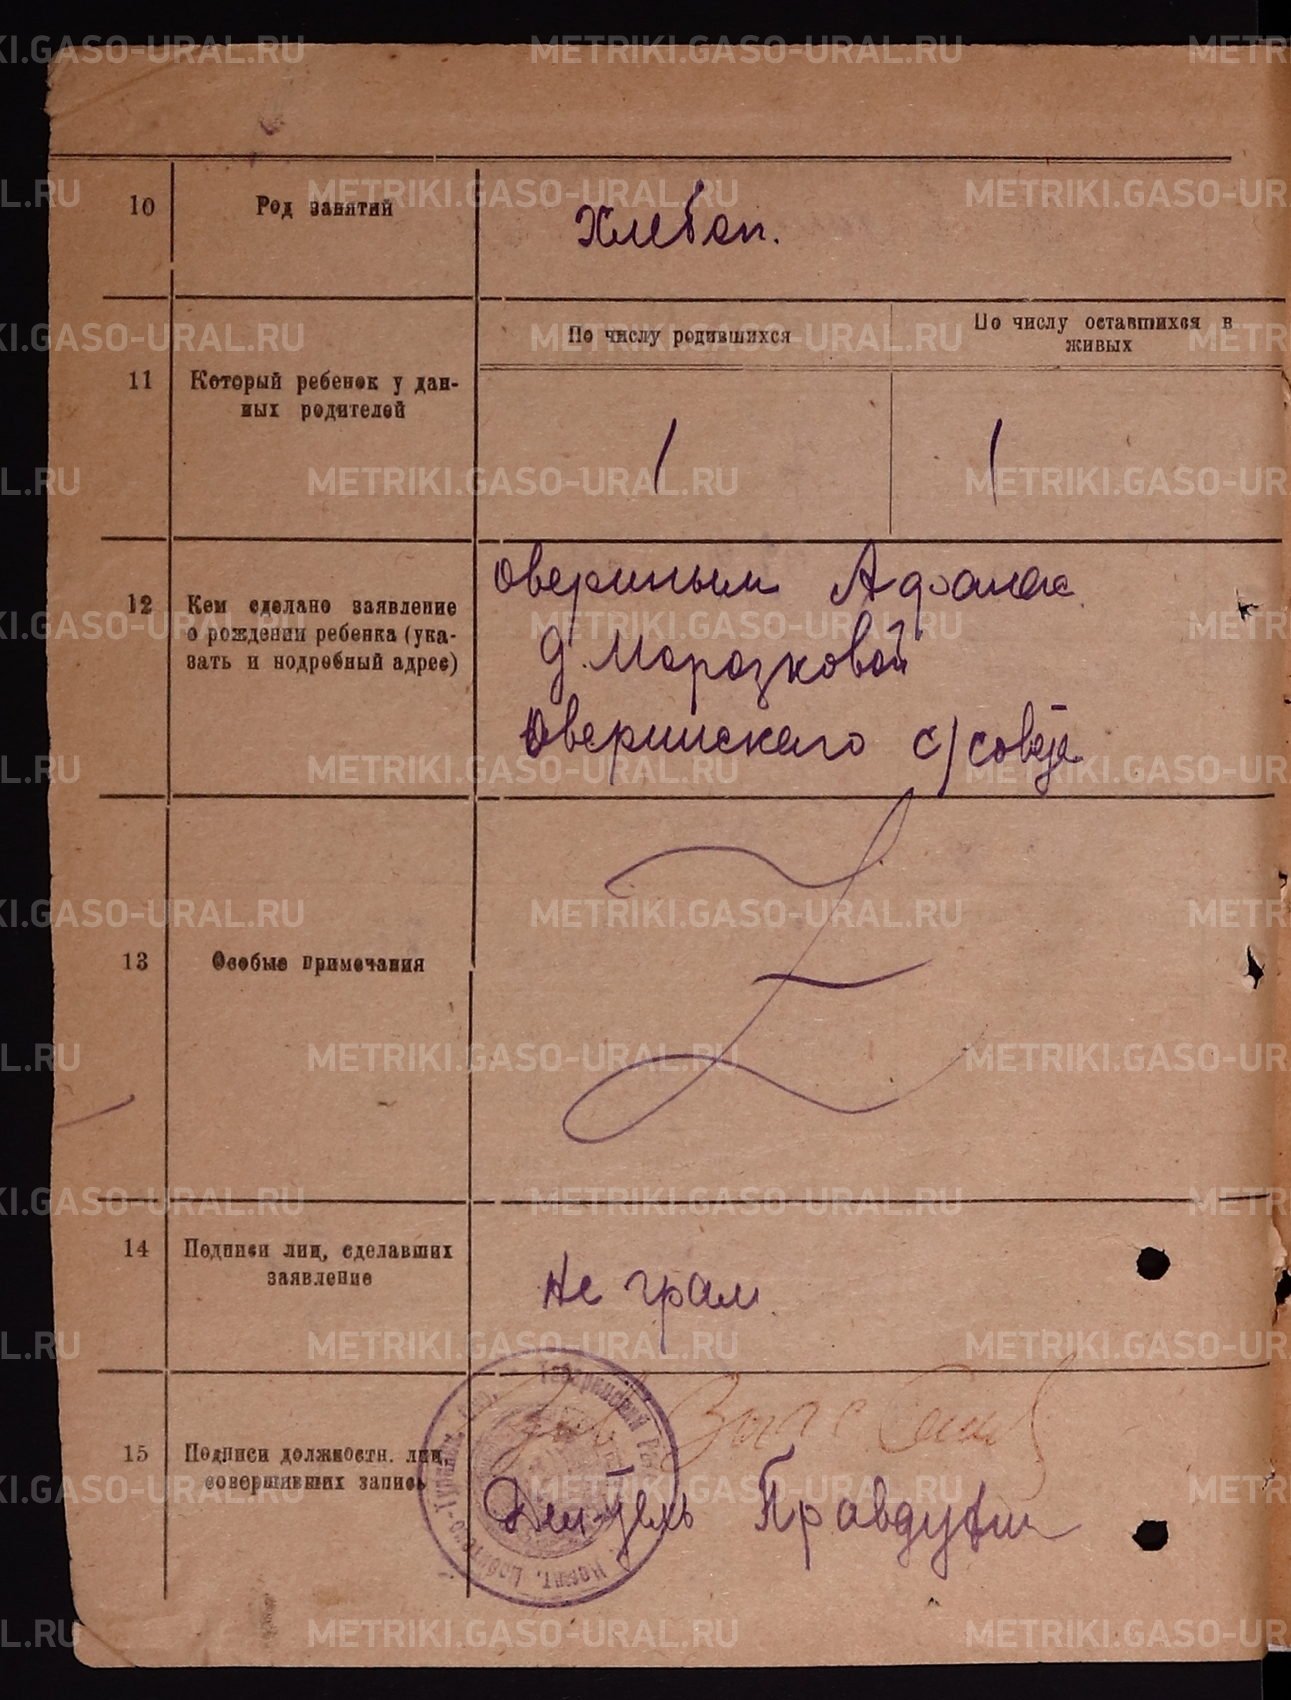 10 Род занятий Хлебоп.
По числу родившихся
По числу оставшихся в живых
11 Который ребенок у дан-
ных родителей
1 1
12 Кем сделано заявление
о рождении ребенка (ука-
зать и подробный адрес)
Овериным Афанас.
д. Морозковой
Оверинского с/совета
13 Особые примечания
Z
14 Подписи лиц, сделавших
заявление
Не грам.
15 Подписи должностн. лиц,
совершивших запись
Табаринский
METRIKI.GASO-URAL.RU